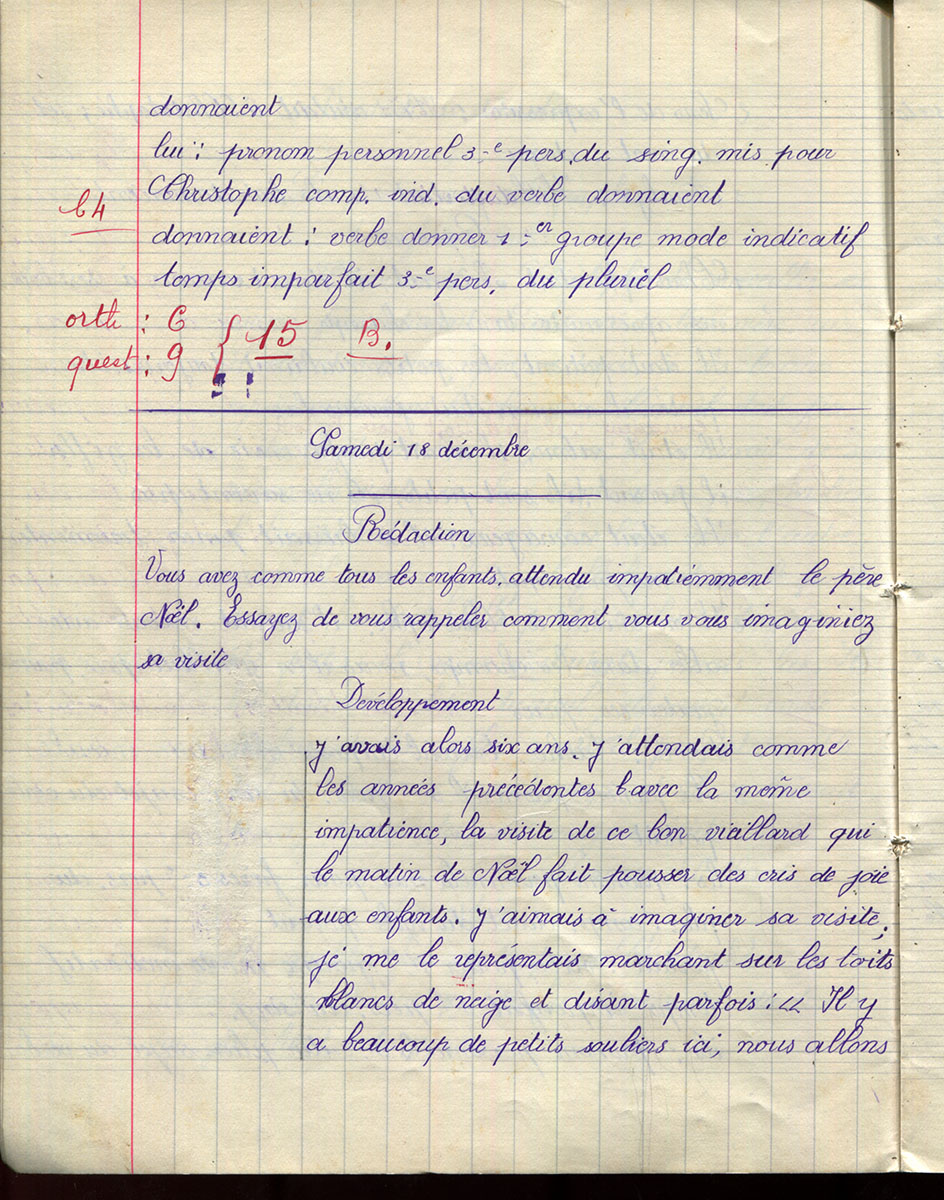 donnaient
lui : pronom personnel 3e pers. du sing. mis pour
Christophe comp. ind. du verbe donnaient
donnaient : verbe donner 1er groupe mode indicatif
temps imparfait 3e pers. du pluriel
orth : 6
quest : 9 { 15 B.
Samedi 18 décembre
Rédaction
Vous avez comme tous les enfants, attendu impatiémment le père
Noël. Essayez de vous rappeler comment vous vous imaginiez
sa visite
Développement
J'avais alors six ans. J'attendais comme
les années précédentes avec la même
impatience, la visite de ce bon vieillard qui
le matin de Noël fait pousser des cris de joie
aux enfants. J'aimais à imaginer sa visite,
je me le représentais marchant sur les toits
blancs de neige et disant parfois : « Il y
a beaucoup de petits souliers ici, nous allons